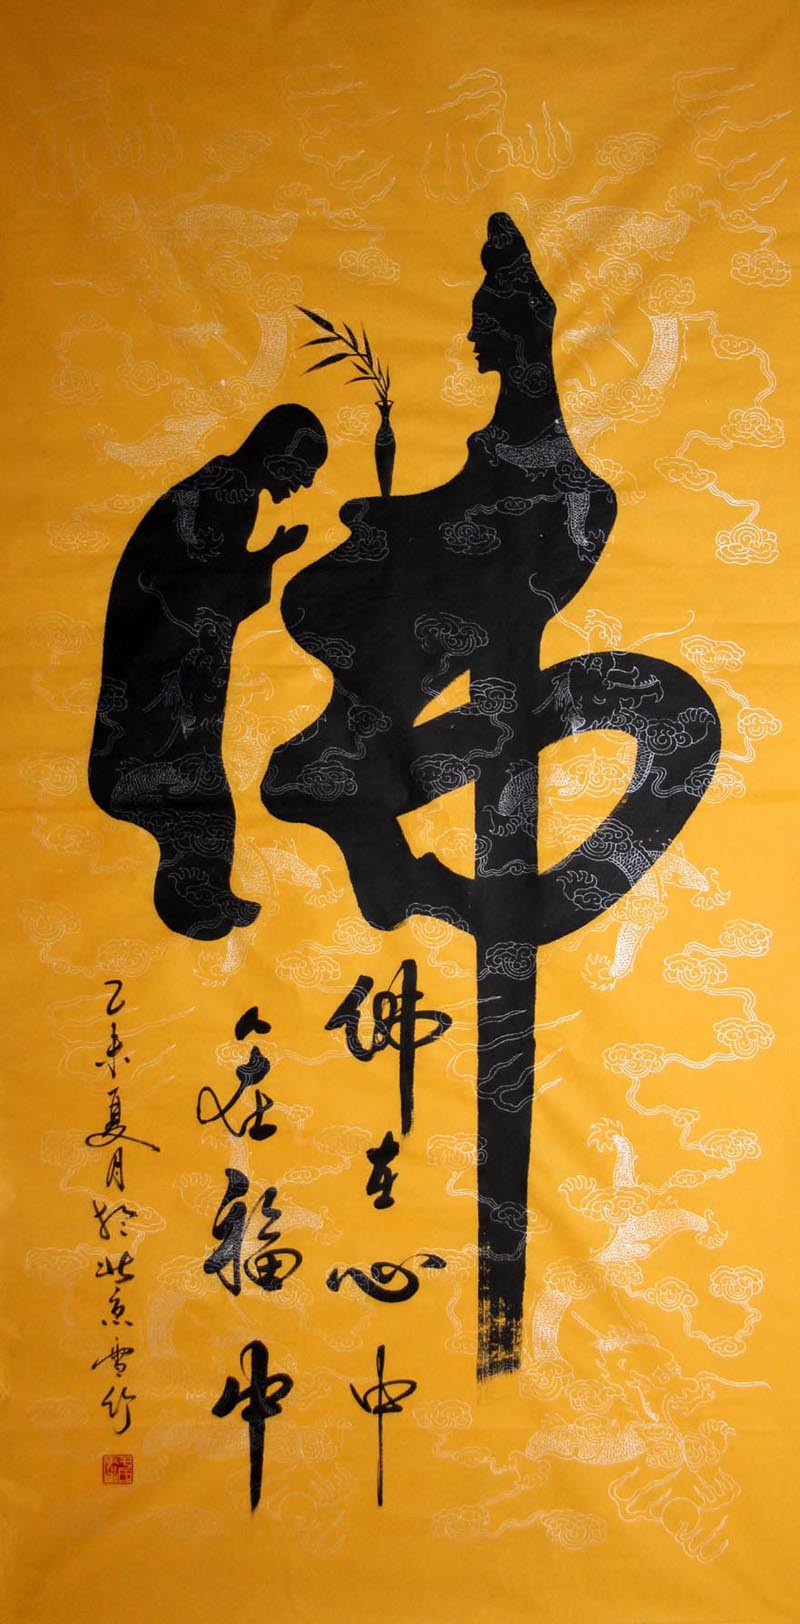 佛
佛在心中
人在福中
乙未夏月於北京雪竹